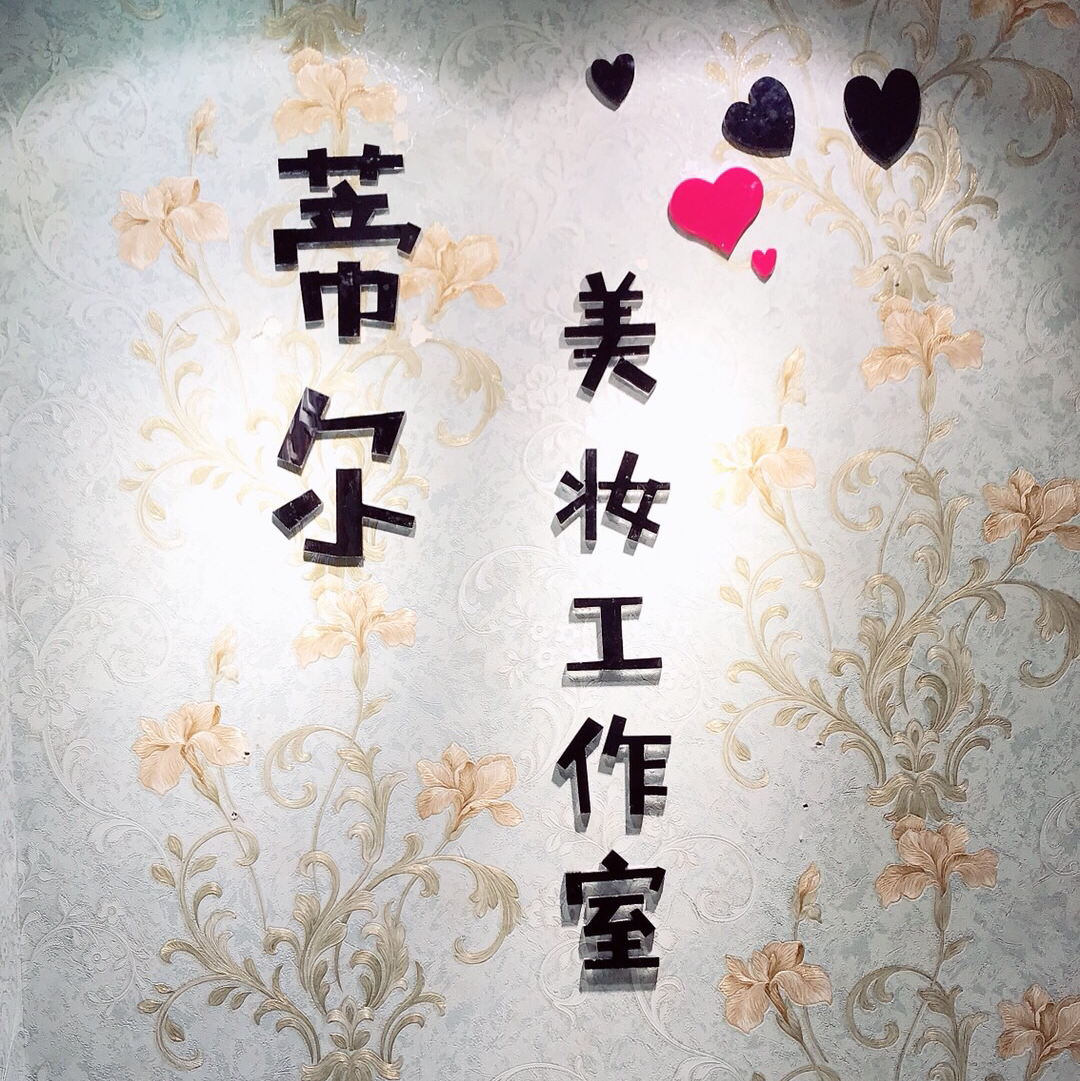 蒂尔
美妆工作室